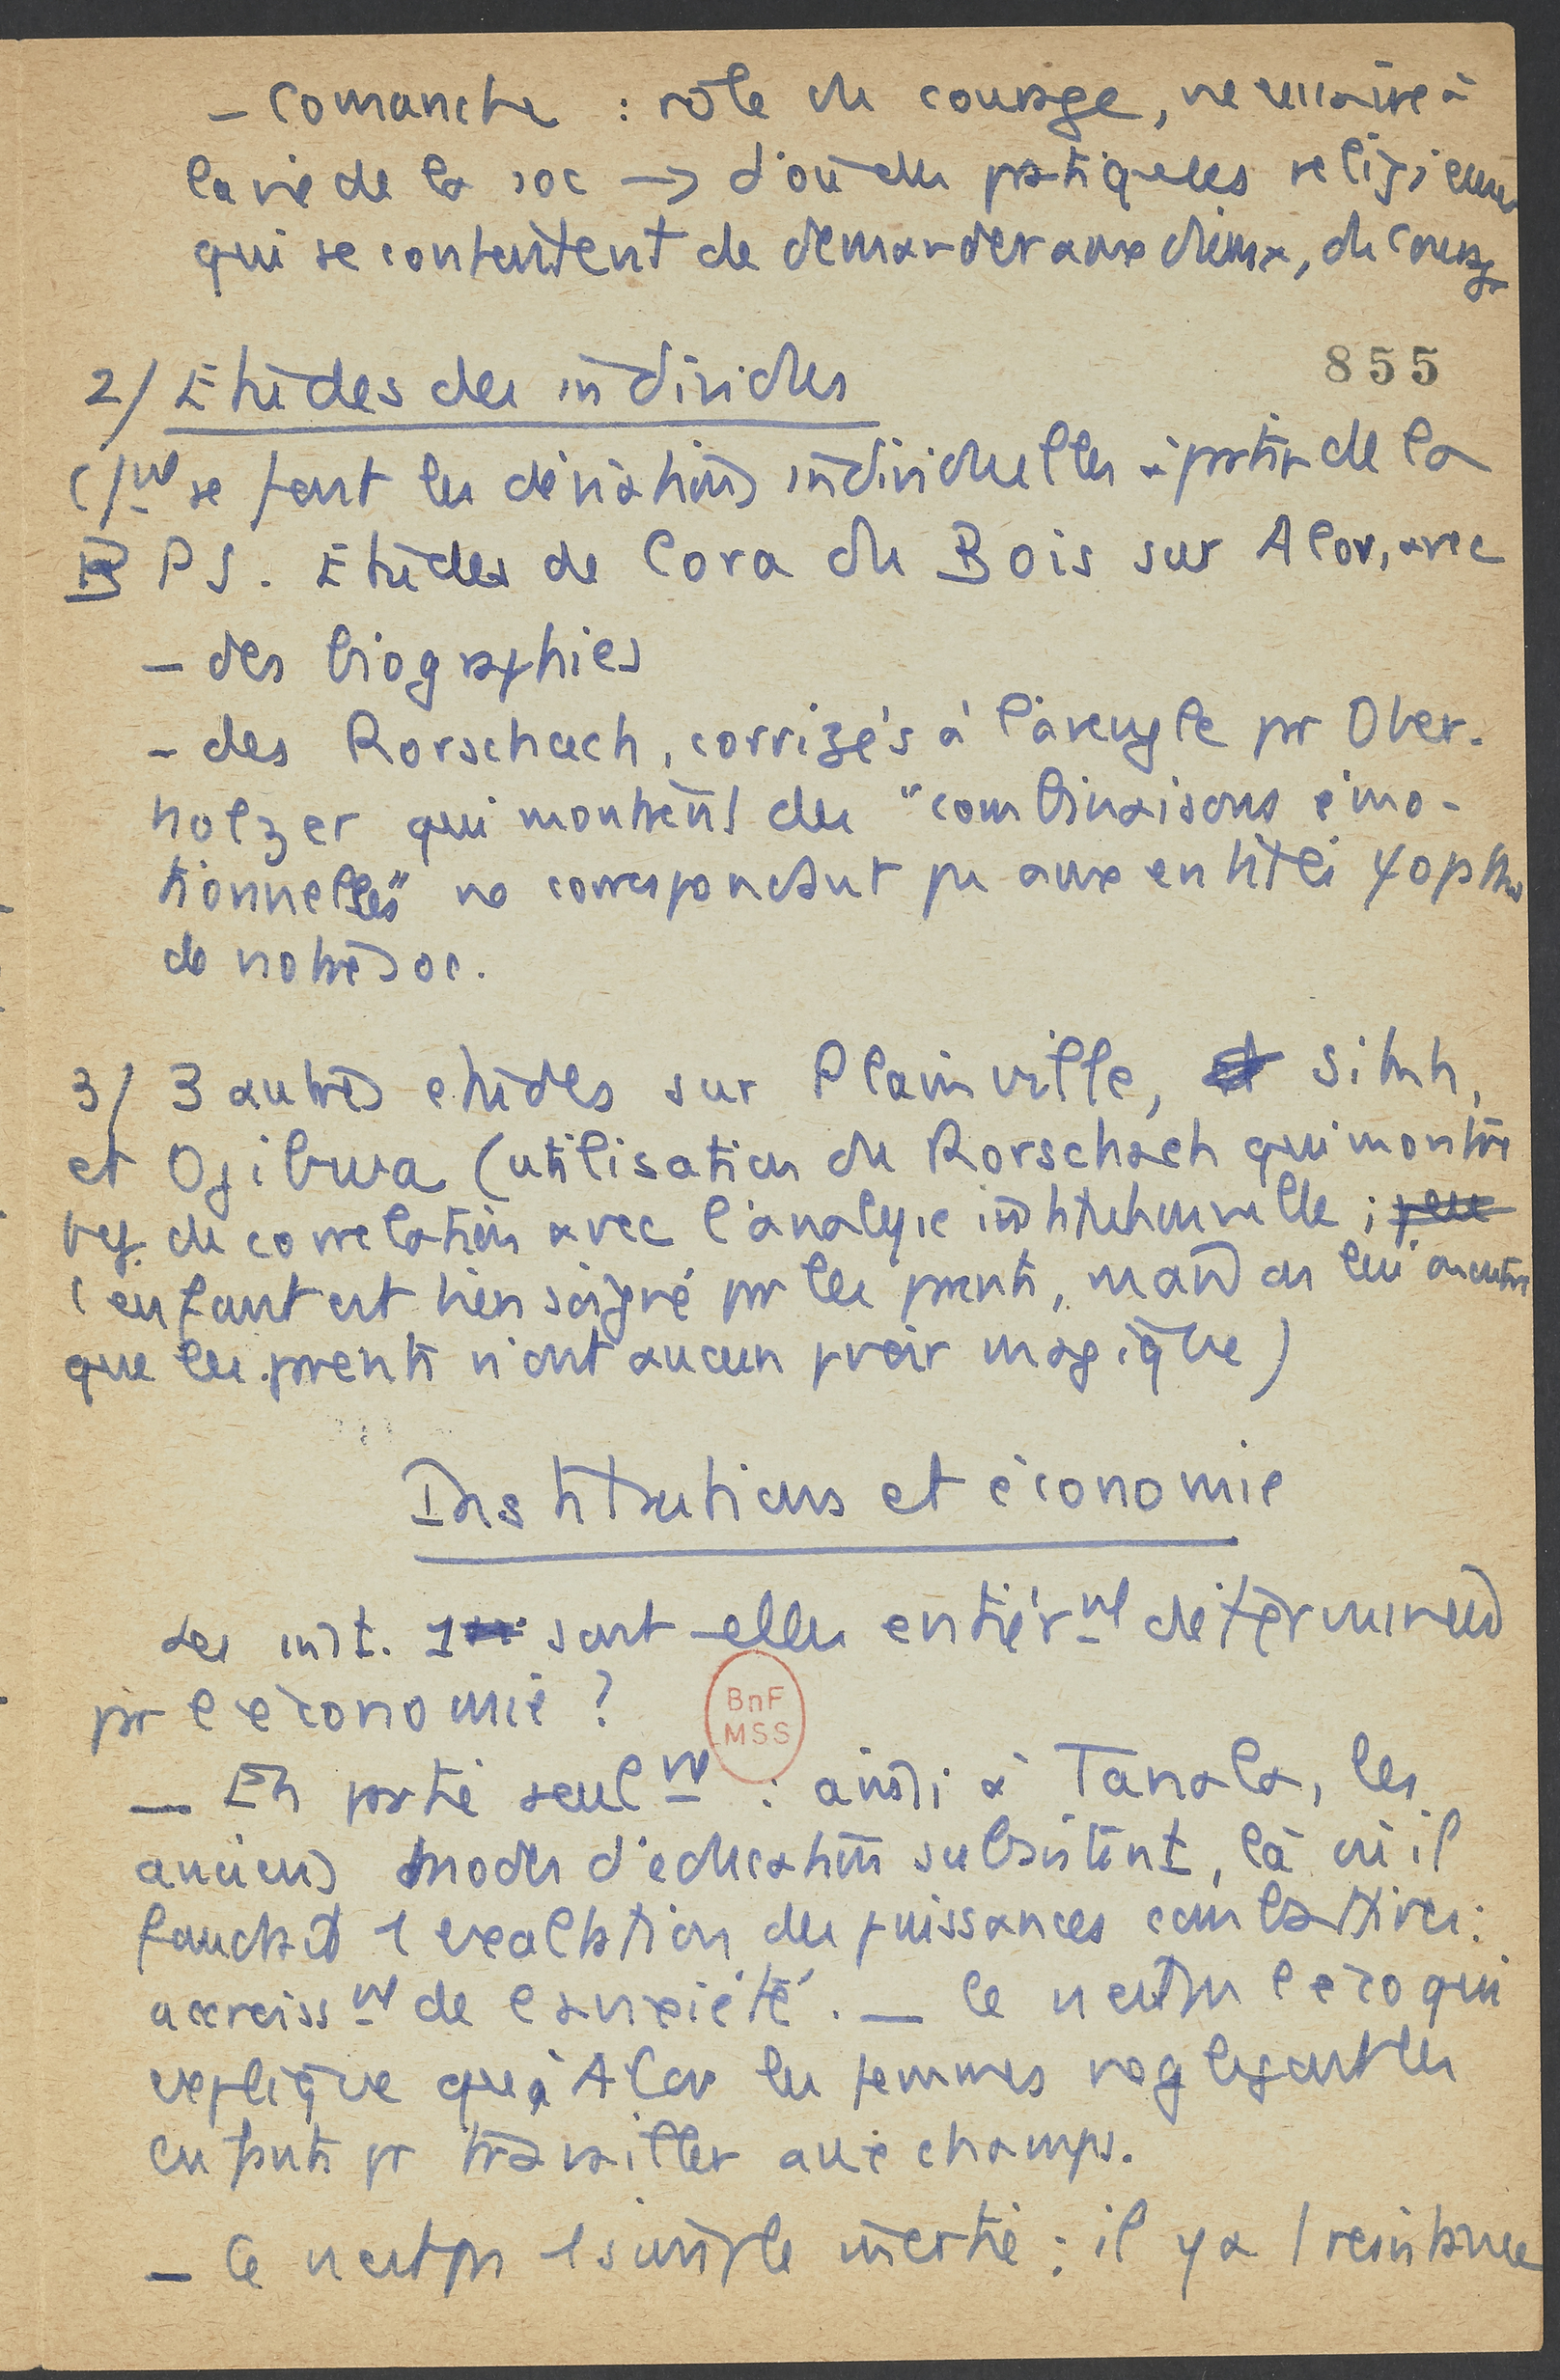 - Comanche : rôle du courage, nécessaire à
la vie de la soc → d'où des pratiques religieuses
qui se contentent de demander aux dieux, du courage
855
2/ Etudes des individus
C/nt se font les déviations individuelles à partir de la
PS. Etudes de Cora du Bois sur Alor, avec
- des biographies
- des Rorschach, corrigés à l'aveugle pr Ober-
holzer qui montrent des "combinaisons émo-
tionnelles" ne correspondant pas aux entités ψopath
de notre soc.
3/ 3 autres etudes sur Plainville, et Sikh,
et Ojibwa (utilisation du Rorschach qui montre
bcp de correlation avec l'analyse institutionnelle ;
l'enfant est bien soigné pr les parents, mais on lui montre
que les parents n'ont aucun pvoir magique)
Institutions et économie
Les inst. 1 sont-elles entièrnt déterminées
pr l'économie ?
BnF
MSS
— En partie seulnt : ainsi à Tanala, les
anciens modes d'éducation subsistent, là où il
faudrait 1 exaltation des puissances combatives :
accroissnt de l'anxiété. — Ce n'est pas l'éco qui
explique qu'à Alor les femmes negligent les
enfants pr travailler aux champs.
— Ce n'est pas 1 simple inertie : il y a 1 resistance